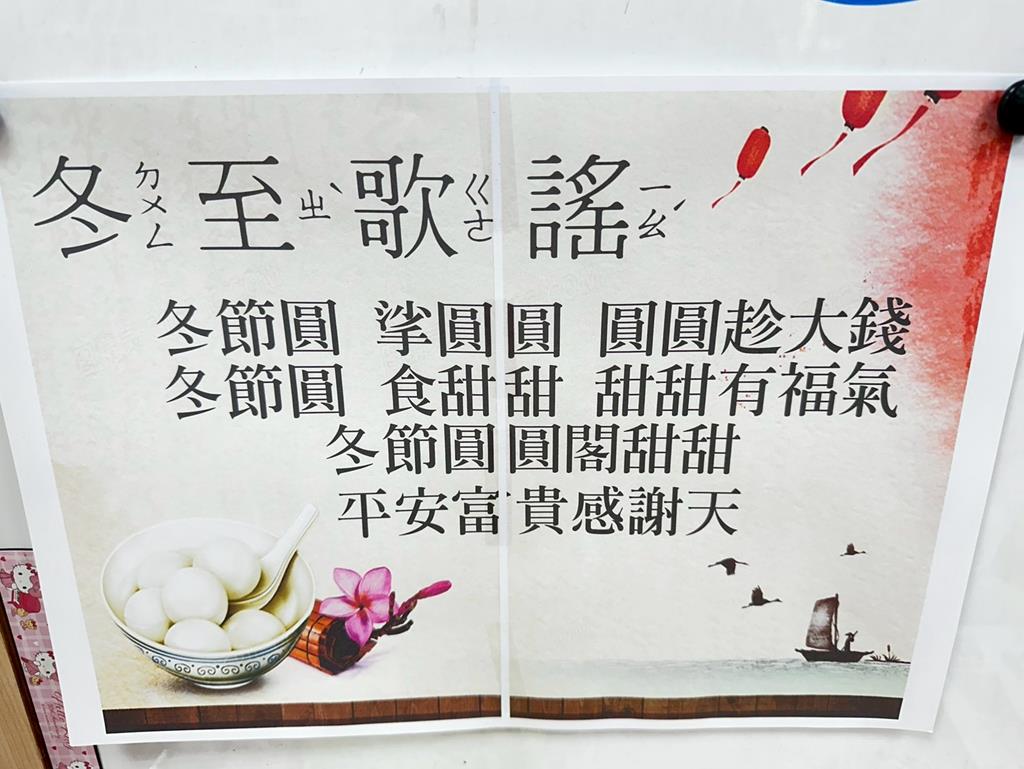 冬ㄉㄨㄥ 至ㄓˋ 歌ㄍㄜ 謠ㄧㄠˊ
冬節圓 挲圓圓 圓圓趁大錢
冬節圓 食甜甜 甜甜有福氣
冬節圓圓閣甜甜
平安富貴感謝天